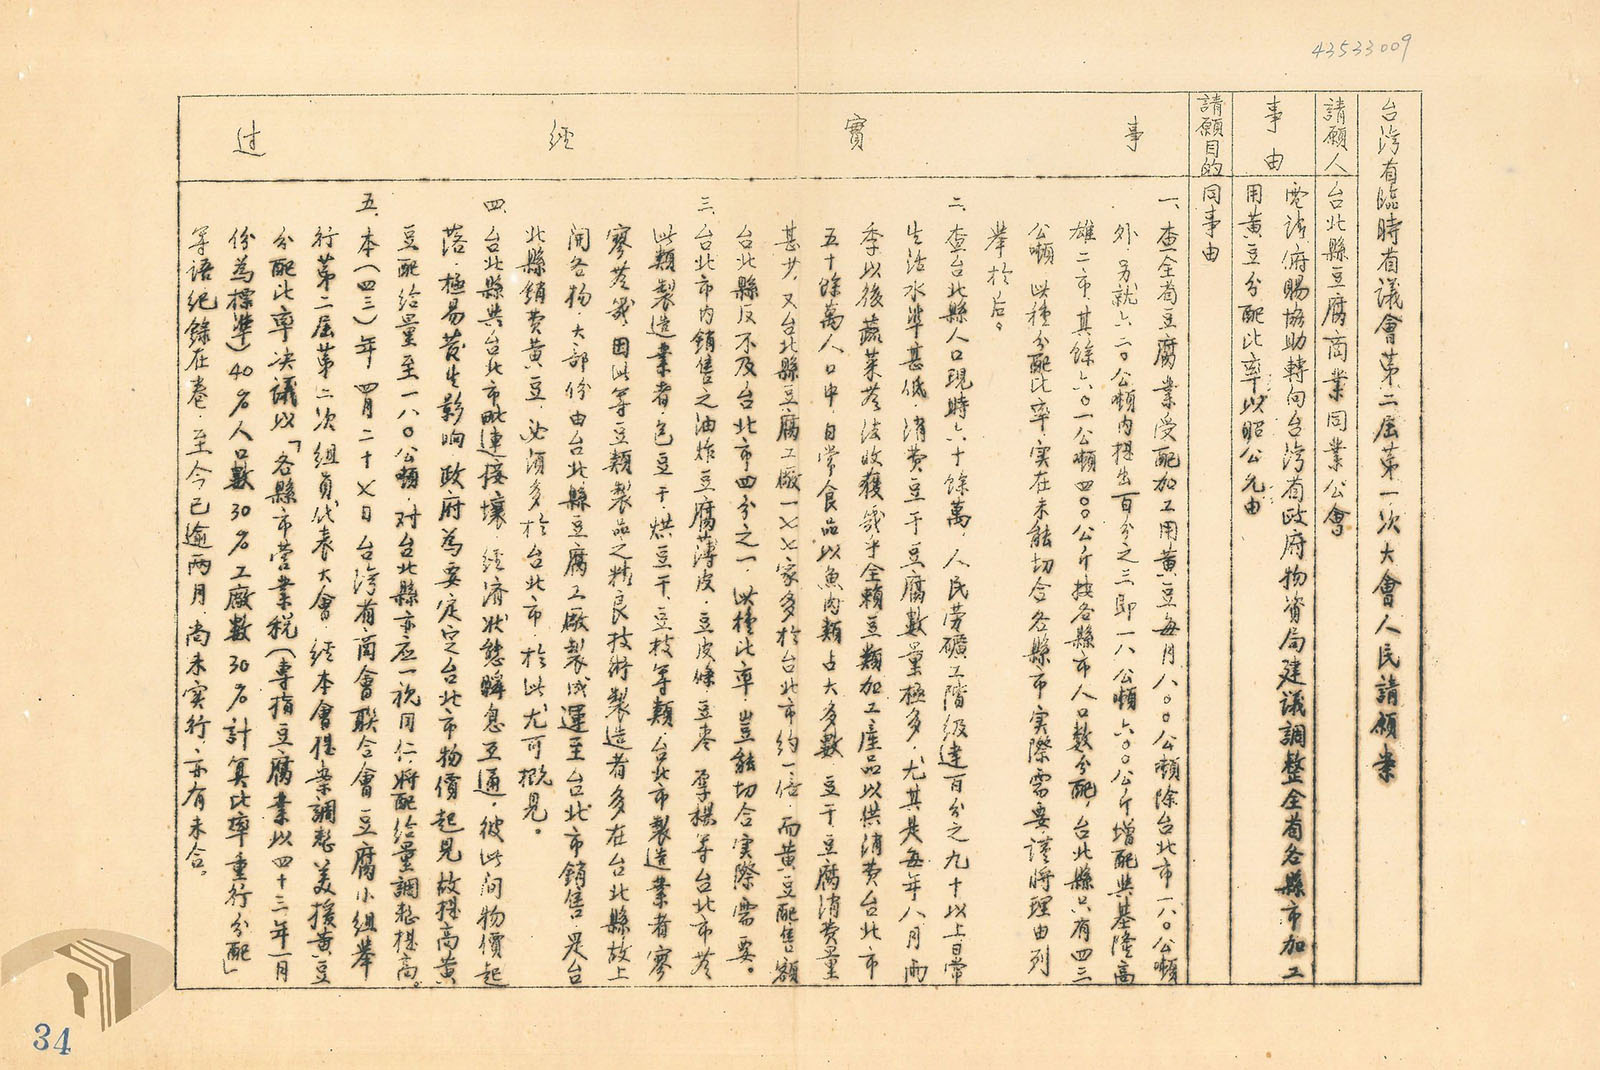 43533009
台湾省臨時省議會第二届第一次大會人民請願案
請願人
台北縣豆腐商業同業公會
事由
為請府賜協助轉向台湾省政府物資局建議調整全省各縣市加工
用黄豆分配比率以昭公允由
請願目的
同事由
事實經过
一、查全省豆腐業受配加工用黄豆每月八〇〇公噸除台北市一八〇公噸
外、另就六二〇公噸内提出百分之三即一八公噸六〇〇公斤增配與基隆高
雄二市、其餘六〇一公噸四〇〇公斤按各縣市人口数分配，台北縣只有四三
公噸，此種分配比率实在未能切合各縣市实際需要，謹将理由列
舉於后。
二、查台北縣人口現時六十餘萬，人民劳礦工階級達百分之九十以上日常
生活水準甚低，消費豆干豆腐數量極多，尤其是每年八月雨
季以後蔬菜苳法收獲幾乎全賴豆類加工產品以供消費台北市
五十餘萬人口中，日常食品以魚肉類占大多數，豆干、豆腐消費量
甚少，又台北縣豆腐工廠一七七家多於台北市約一倍，而黄豆配售額
台北縣反不及台北市四分之一，此種比率豈能切合实際需要。
三、台北市内銷售之油炸豆腐薄皮、豆皮條、豆枣、孕棋等台北市苳
此類製造業者，色豆干、烘豆干、豆枝等類，台北市製造業者寥
寥苳幾，因此等豆類製品之精良技術製造者多在台北縣故上
開各物，大部份由台北縣豆腐工廠製成運至台北市銷售，是台
北縣銷費黄豆，必須多於台北市，於此尤可概見。
四、台北縣與台北市毗連接壤，經済状態瞬息互通，彼此间物價起
落，極易发生影响，政府為要定定台北市物價起見故提高黄
豆配给量至一八〇公噸，对台北縣亦应一視同仁，将配给量調整提高。
五、本（四三）年四月二十七日台湾省商會联合會豆腐小組舉
行第二届第二次組員代表大會，經本會提案調整美援黄豆
分配比率决議以「各縣市营業税（專指豆腐業以四十三年一月
份為標準）40％人口數30％工廠数30％計算比率重行分配」
等語紀錄在卷，至今已逾两月，尚未实行，亦有未合。
34